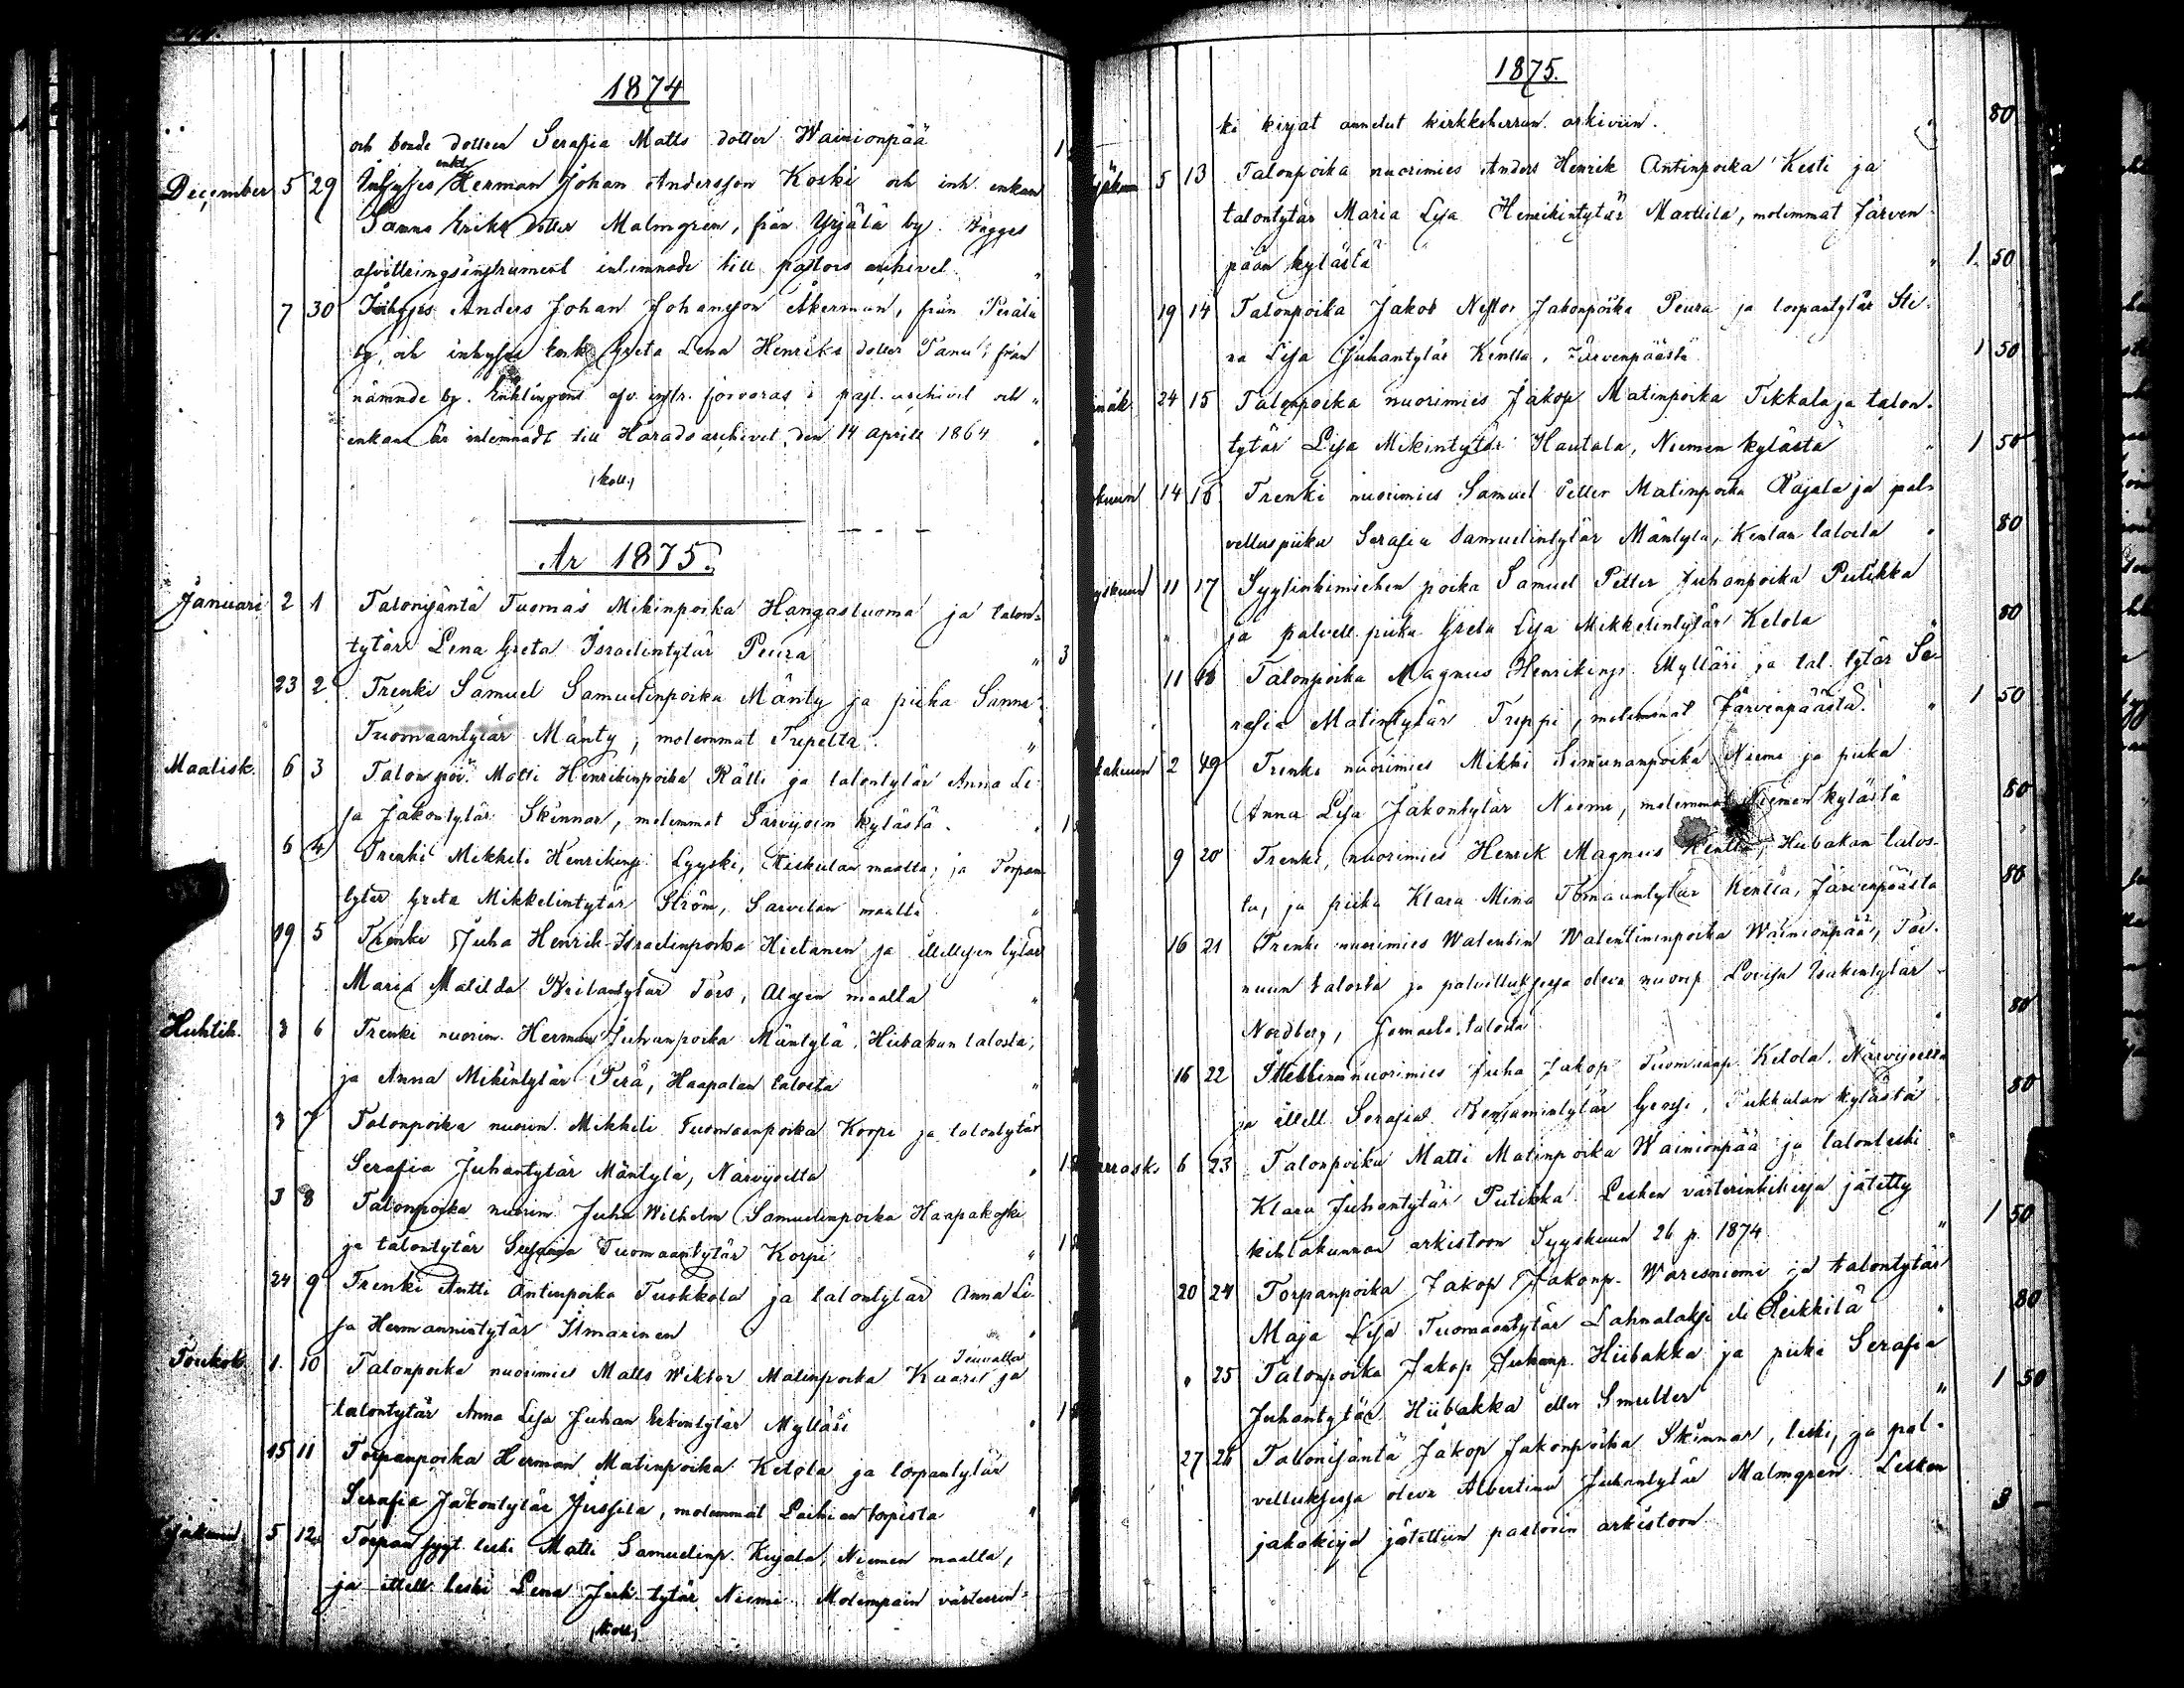 1874
och bonde dottren Serafia Matts dotter Wainionpää 1
enkl.
December 5 29 Inhyses Herman Johan Andersson Koski och inh. enkan
Sanna Eriks dotter Malmgren, från Yrjälä by. Bägges
afvittringsinstrument inlemnade till pastors archivet "
7 30 Inhyses Anders Johan Johansson Åkerman, från Perälä
by, och inhyses enk. Greta Lena Henriks dotter Panu, från
nämnde by. Enklingens afv. instr. förvaras i past. archivet och "
enkans är inlemnadt till Härads archivet, den 14 April 1864 "
(koll.)
År 1875.
Januari 2 1 Talonisäntä Tuomas Mikinpoika Hangasluoma ja talon-
tytär Lena Greta Israelintytär Peura " 3
23 2 Trenki Samuel Samuelinpoika Mänty ja piika Sanna
Tuomaantytär Mänty, molemmat Trepelta. "
Maalisk. 6 3 Talonpoi. Matti Henrikinpoika Rätti ja talontytär Anna Li-
sa Jakontytär Skinnar, molemmat Sarvijoen kylästä. " 1
6 4 Trenki Mikkeli Henrikinp. Lyyski, maalta, ja Torpan
tytär Greta Mikkelintytär Ström, Sarvelan maalta "
19 5 Trenki Juha Henrik Israelinpoika Hietanen ja itellisen tytär
Maria Matilda tytär Fors, maalta "
Huhtik. 3 6 Trenki nuorim. Herman Juhanpoika Mäntylä, Hiibakan talosta,
ja Anna Mikintytär Perä, Haapalan talosta "
3 7 Talonpoika nuorim. Mikkeli Tuomaanpoika Korpi ja talontytär
Serafia Juhantytär Mäntylä, Närvijoelta " 1
3 8 Talonpoika nuorim. Juha Wilhelm Samuelinpoika Haapakoski
ja talontytär Susanna Tuomaantytär Korpi " 1
24 9 Trenki Antti Antinpoika Tuokkola ja talontytär Anna Li-
sa Hermannintytär Ilmarinen "
Teuvalta
Toukok. 1. 10 Talonpoika nuorimies Matts Wiktor Matinpoika Kaari ja
talontytär Anna Lisa Juhan Erkintytär Mylläri " 1
15 11 Torpanpoika Herman Matinpoika Ketola ja torpantytär
Serafia Jakontytär Jussila, molemmat "
5 12 Torpan leski Matti Samuelinp. Kujala, Niemen maalta,
ja itell. leski Lena Juh. tytär Niemi. Molempain värteerin-
(koll.)
1875.
ki kirjat annetut kirkkoherran arkiviin. " 80
5 13 Talonpoika nuorimies Anders Henrik Antinpoika Kesti ja
talontytär Maria Lisa Henrikintytär Marttila, molemmat Järven-
pään kylästä " 1. 50
19 14 Talonpoika Jakob Nestor Jakonpoika Peura ja torpantytär Sti-
na Lisa Juhantytär Kentta, Järvenpäästä 1 50
24 15 Talonpoika nuorimies Jakop Matinpoika Tikkala ja talon-
tytär Lisa Mikintytär Hautala, Niemen kylästä " 1 50
kuun 14 16 Trenki nuorimies Samuel Petter Matinpoika Rajala ja pal-
velluspiika Serafia Samuelintytär Mäntylä, Kentan talosta " 80
11 17 Syytinkimiehen poika Samuel Petter Juhanpoika Putikka
" ja palvell. piika Greta Lisa Mikkelintytär Ketola " 80
11 18 Talonpoika Magnus Henrikinp. Mylläri ja tal. tytär Se-
rafia Matintytär Treppi, molemmat Järvenpäästä. " 1 50
2 19 Trenki nuorimies Mikki Simunanpoika Niemi ja piika
Anna Lisa Jakontytär Niemi, molemmat Niemen kylästä 80
9 20 Trenki, nuorimies Henrik Magnus Kentta, Hiibakan talos-
ta, ja piika Klara Mina Tomaantytär Kentta, Järvenpäästä 80
16 21 Trenki nuorimies Walentin Walentininpoika Wainionpää,
nuun talosta ja palvelluksessa oleva nuorip. Lovisa Isakintytär
Nordberg, talosta " 80
16 22 Itellinen nuorimies Juha Jakop Tuomaanp. Ketola, Närvijoelta
ja itell. Serafia Benjamintytär Grossi, Tukkalan kylästä 80
6 23 Talonpoika Matti Matinpoika Wainionpää ja talonleski
Klara Juhantytär Putikka. Lesken värterinkikirja jätetty
kihlakunnan arkistoon Syyskuun 26 p. 1874 " 1 50
20 24 Torpanpoika Jakop Jakonp. Waresniemi ja talontytär
Maja Lisa Tuomaantytär Lahnalaksi eli Heikkilä " 80
" 25 Talonpoika Jakop Juhanp. Hiibakka ja piika Serafia
Juhantytär Hiibakka eller Smulter " 1 50
27 26 Talonisäntä Jakop Jakonpoika Skinnar, leski, ja pal-
velluksessa oleva Albertina Juhantytär Malmgren. Lesken
jakokirja jätettiin pastorin arkistoon 3